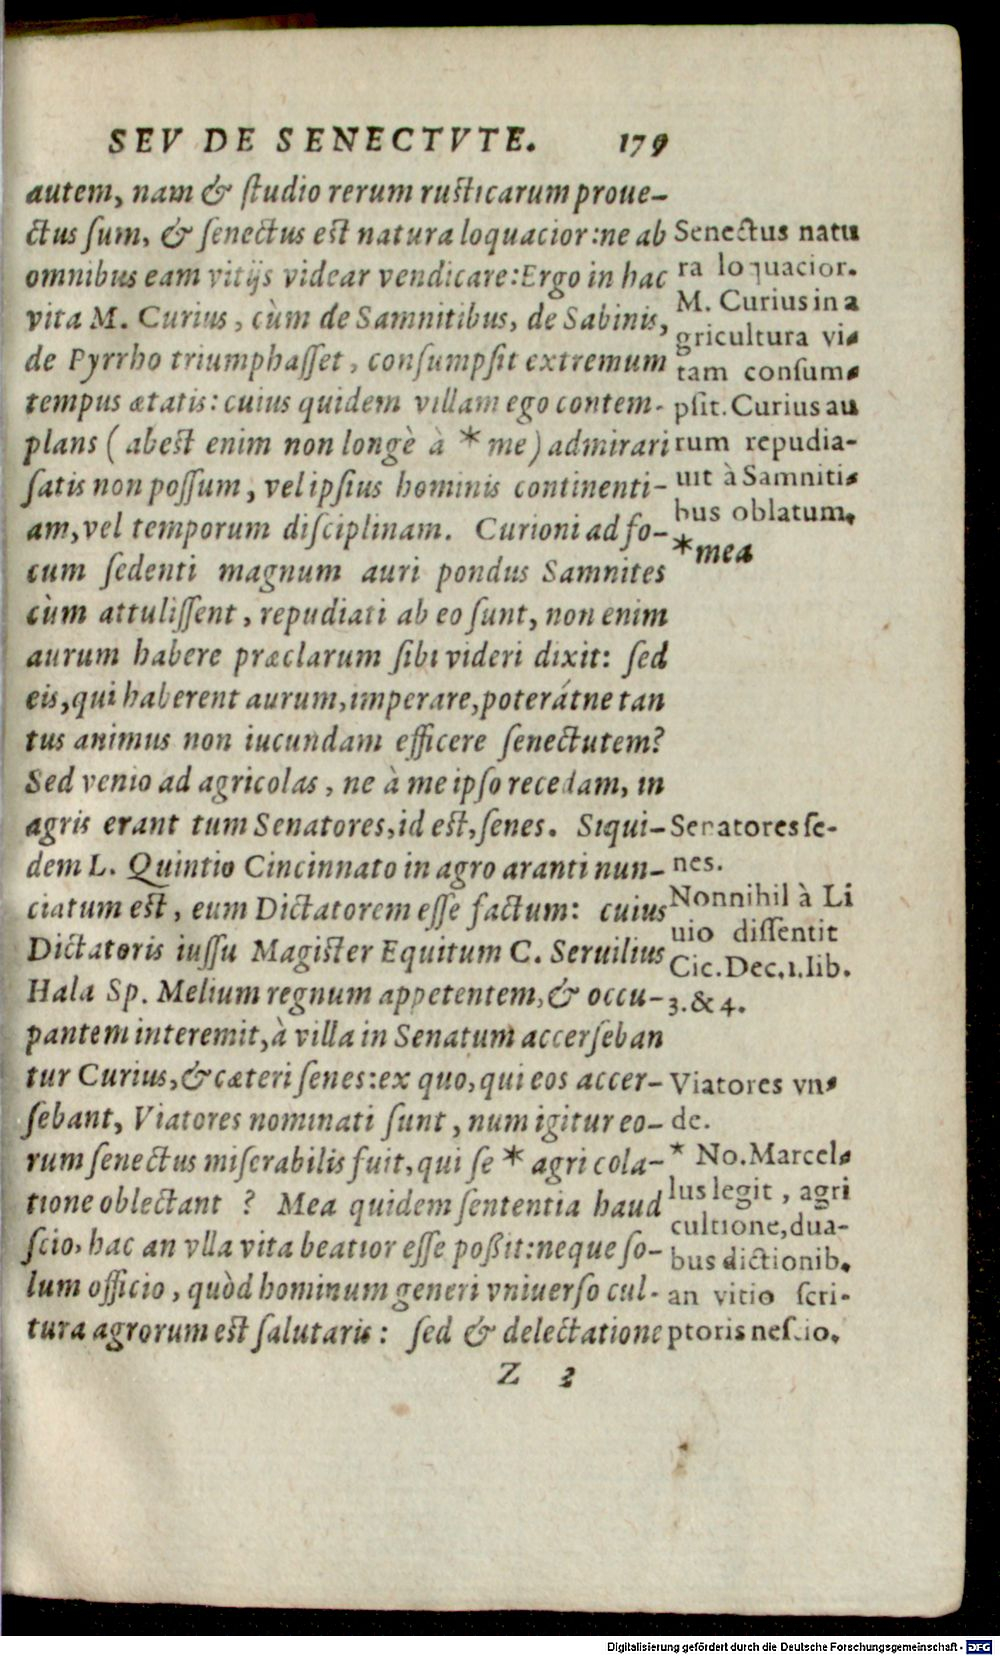 SEV DE SENECTVTE. 179
autem, nam & ſtudio rerum ruſticarum proue-
ctus ſum, & ſenectus eſt natura loquacior: ne ab
omnibus eam vitijs videar vendicare: Ergo in hac
vita M. Curius, cùm de Samnitibus, de Sabinis,
de Pyrrho triumphaſſet, conſumpſit extremum
tempus ætatis: cuius quidem villam ego contem-
plans (abeſt enim non longè à * me) admirari
ſatis non poſſum, vel ipſius hominis continenti-
am, vel temporum diſciplinam. Curioni ad fo-
cum ſedenti magnum auri pondus Samnites
cùm attuliſſent, repudiati ab eo ſunt, non enim
aurum habere præclarum ſibi videri dixit: ſed
eis, qui haberent aurum, imperare, poterátne tan
tus animus non iucundam efficere ſenectutem?
Sed venio ad agricolas, ne à me ipſo recedam, in
agris erant tum Senatores, id eſt, ſenes. Siqui-
dem L. Quintio Cincinnato in agro aranti nun-
ciatum eſt, eum Dictatorem eſſe factum: cuius
Dictatoris iuſſu Magiſter Equitum C. Seruilius
Hala Sp. Melium regnum appetentem, & occu-
pantem interemit, à villa in Senatum accerſeban
tur Curius, & cæteri ſenes: ex quo, qui eos accer-
ſebant, Viatores nominati ſunt, num igitur eo-
rum ſenectus miſerabilis fuit, qui ſe * agri cola-
tione oblectant ? Mea quidem ſententia haud
ſcio, hac an vlla vita beatior eſſe poßit: neque ſo-
lum officio, quòd hominum generi vniuerſo cul-
tura agrorum eſt ſalutaris: ſed & delectatione
Z 3
Senectus natu
ra loquacior.
M. Curius in a
gricultura vi-
tam conſum-
pſit. Curius au
rum repudia-
uit à Samniti-
bus oblatum.
*mea
Senatores ſe-
nes.
Nonnihil à Li
uio diſſentit
Cic. Dec. 1. lib.
3. & 4.
Viatores vn-
de.
* No. Marcel-
lus legit, agri
cultione, dua-
bus dictionib.
an vitio ſcri-
ptoris neſcio.
Digitalisierung gefördert durch die Deutsche Forschungsgemeinschaft - DFG